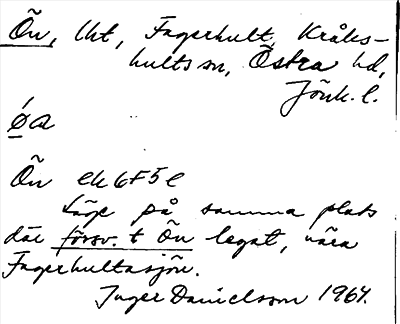 Ön, lht, Fagerhult, Kråks-
hults sn, Östra hd,
Jönk. l.
øa
Ön ek 6F5e
Läge på samma plats
där försv. t Ön legat, nära
Fagerhultasjön.
Inger Danielsson 1964.